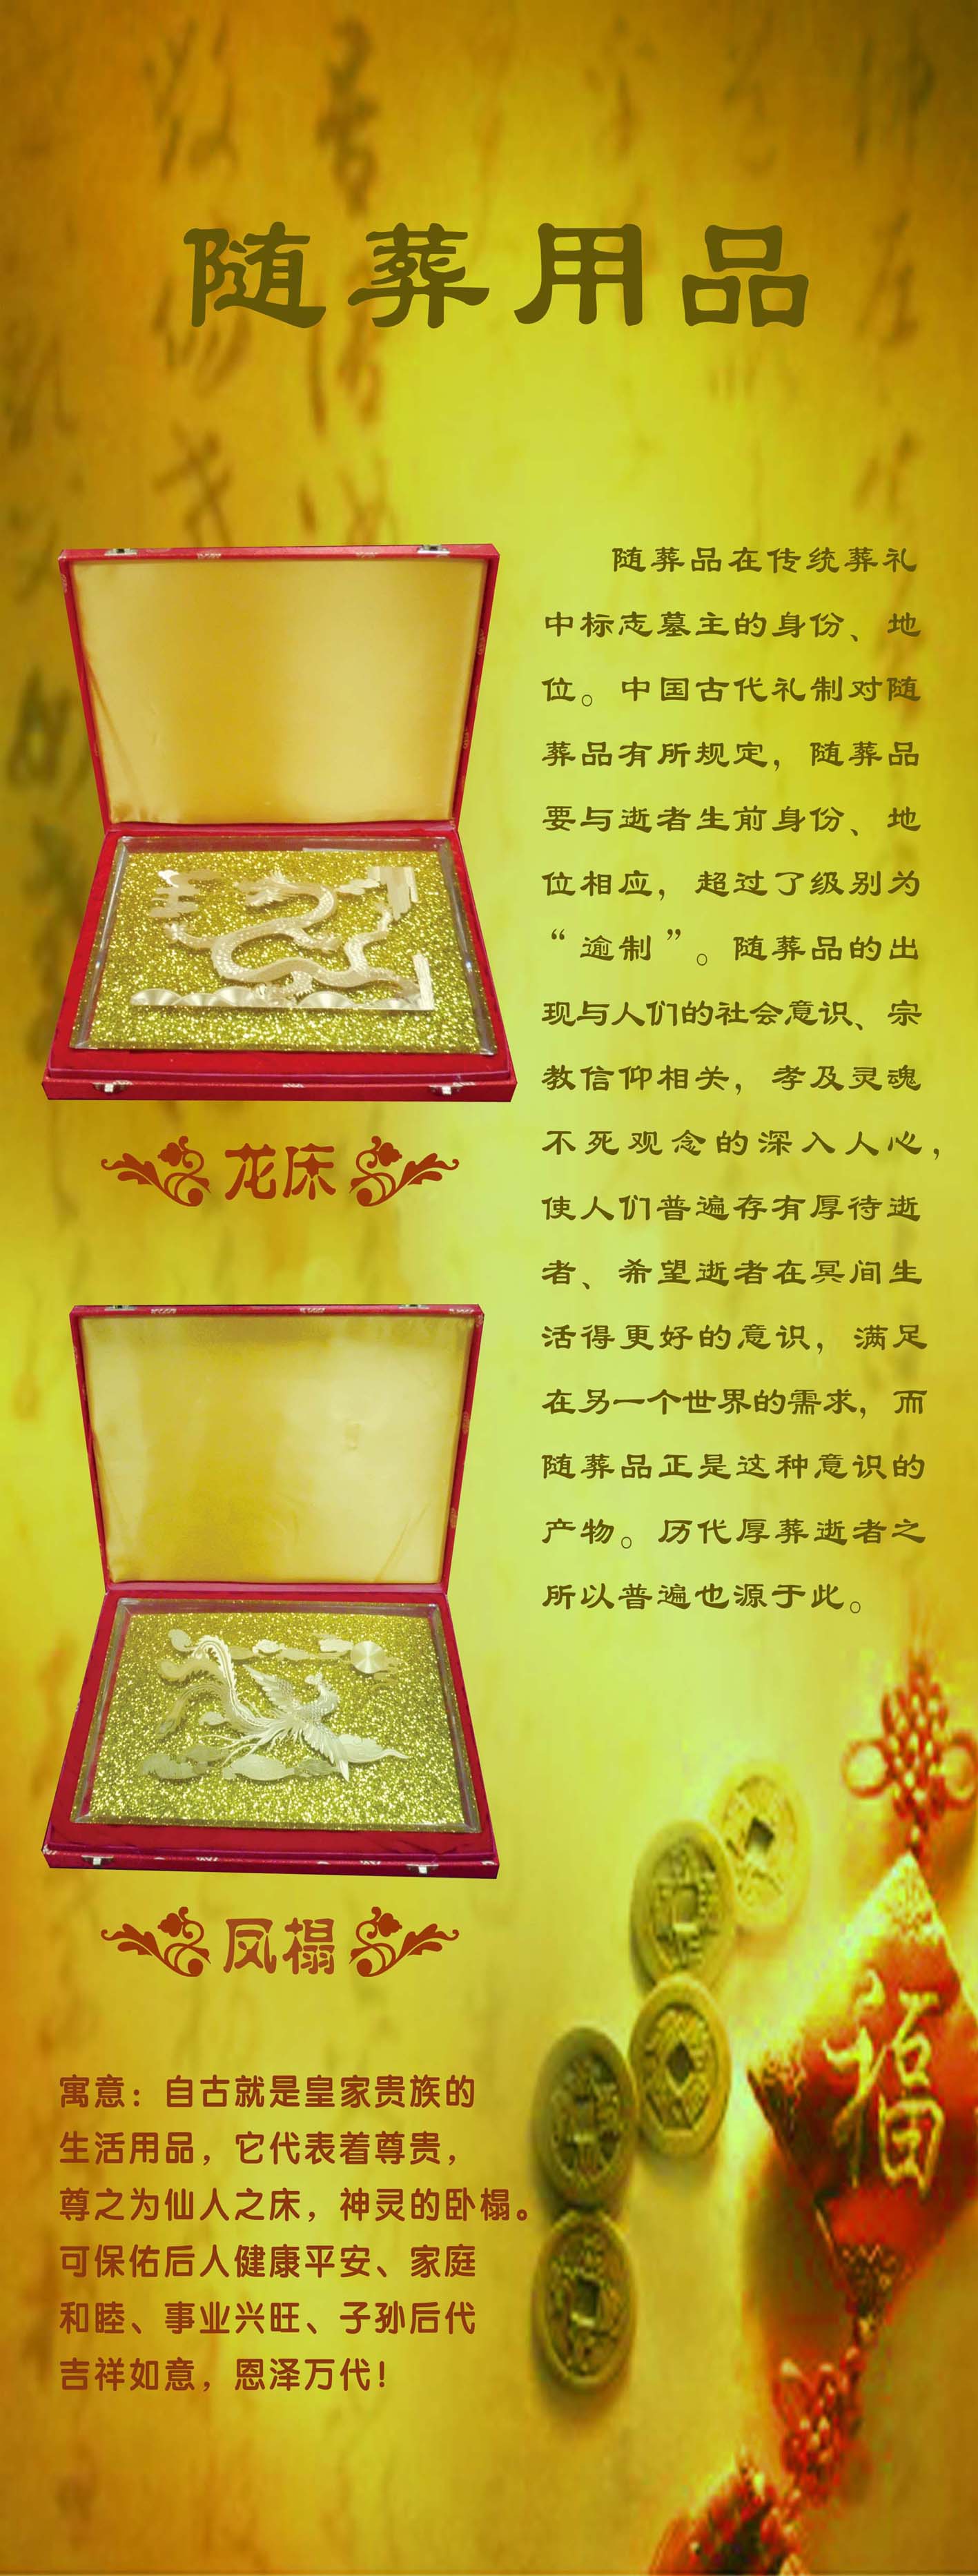 随葬用品
随葬品在传统葬礼
中标志墓主的身份、地
位。中国古代礼制对随
葬品有所规定，随葬品
要与逝者生前身份、地
位相应，超过了级别为
“逾制”。随葬品的出
现与人们的社会意识、宗
教信仰相关，孝及灵魂
不死观念的深入人心，
使人们普遍存有厚待逝
者、希望逝者在冥间生
活得更好的意识，满足
在另一个世界的需求，而
随葬品正是这种意识的
产物。历代厚葬逝者之
所以普遍也源于此。
龙床
凤榻
寓意：自古就是皇家贵族的
生活用品，它代表着尊贵，
尊之为仙人之床，神灵的卧榻。
可保佑后人健康平安、家庭
和睦、事业兴旺、子孙后代
吉祥如意，恩泽万代！
福